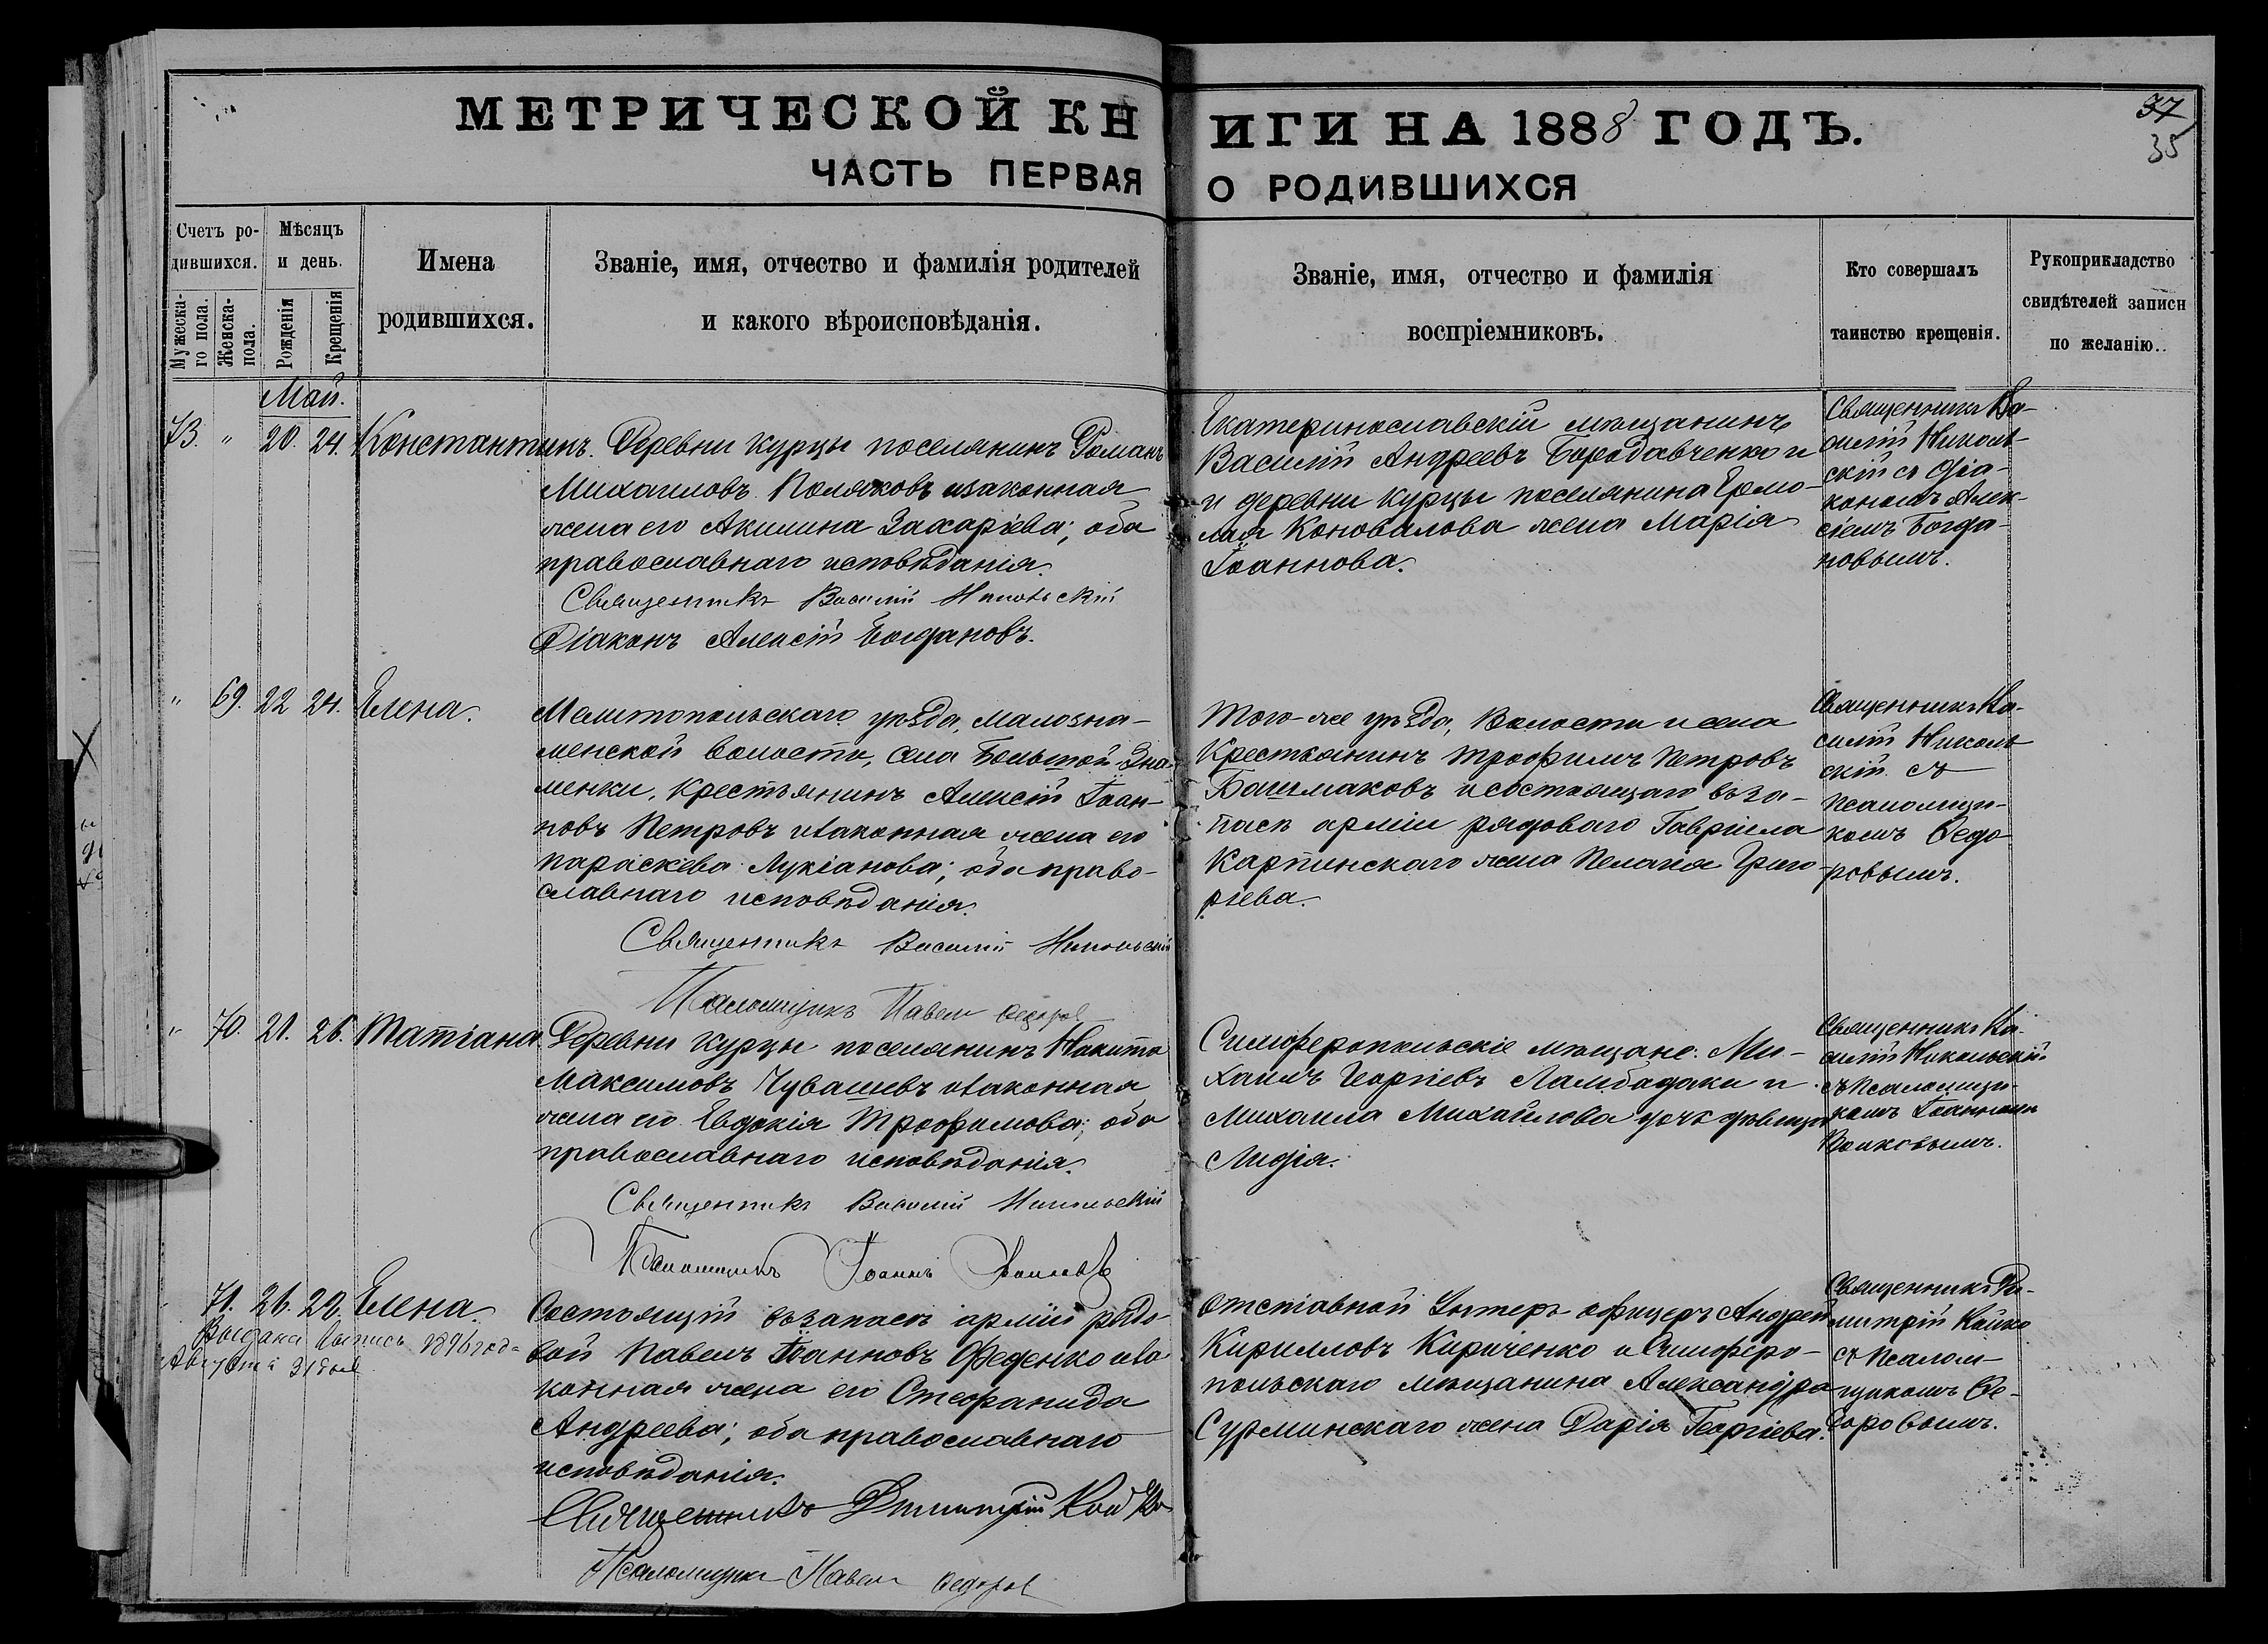 МЕТРИЧЕСКОЙ КНИГИ НА 1888 ГОДЪ.
37
35
ЧАСТЬ ПЕРВАЯ О РОДИВШИХСЯ
Счетъ ро-
дившихся.
Мужеска-
го пола.
Женска-
пола.
Мѣсяцъ
и день.
Рожденія
Крещенія
Имена
родившихся.
Званіе, имя, отчество и фамилія родителей
и какого вѣроисповѣданія.
Званіе, имя, отчество и фамилія
воспріемниковъ.
Кто совершалъ
таинство крещенія.
Рукоприкладство
свидѣтелей записи
по желанію..
Май.
73. " 20. 24. Константинъ.
Деревни Курцы поселянинъ Романъ
Михаиловъ Поляковъ и законная
жена его Акилина Захаріева; оба
православнаго исповѣданія.
Священникъ Василій Никольскій
Діаконъ Алексій Богдановъ.
Екатеринославскій мѣщанинъ
Василій Андреевъ Бородавченко и
и деревни Курцы поселянина Ермо-
лая Коновалова жена Марія
Іоаннова.
Священникъ Ва-
силій Николь-
скій съ діа-
кономъ Алек-
сіемъ Богда-
новымъ.
" 69. 22 24. Елена.
Мелитопольскаго уѣзда, Малозна-
менской волости, села Большой Зна-
менки, крестьянинъ Алексій Іоан-
новъ Петровъ и законная жена его
Параскева Лукіанова; оба право-
славнаго исповѣданія.
Священникъ Василій Никольскій
Псаломщикъ Павелъ Федоров
Того-же уѣзда, волости и села
крестьянинъ Трофимъ Петровъ
Башмаковъ и состоящаго въ за-
пасѣ арміи рядоваго Гавріила
Карпинскаго жена Пелагія Григо-
ріева.
Священникъ Ва-
силій Николь
скій съ
псаломщи-
комъ Федо
ровымъ.
" 70. 21. 26. Татіана.
Деревни Курцы поселянинъ Никита
Максимовъ Чувашевъ и законная
жена его Евдокія Трофимова; оба
православнаго исповѣданія.
Священникъ Василій Никольскій
Псаломщикъ Іоаннъ Волковъ
Симферопольскіе мѣщане: Ми-
хаилъ Георгіевъ Ламбадаки и
Михаила Михайлова дочь дѣвица
Лидія.
Священникъ Ва-
силій Никольскій
съ псаломщи-
комъ Іоанномъ
Волковымъ.
71. 26. 29. Елена.
Выдана выпись 1896 года
Августа 31 дня
Состоящій въ запасѣ арміи рядо-
вой Павелъ Іоанновъ Феденко и за
конная жена его Стефанида
Андреева; оба православнаго
исповѣданія.
Священникъ Димитрій Койко
Псаломщик Павелъ Федоров
Отставной Унтеръ-офицеръ Андрей
Кирилловъ Кириченко и Симферо-
польскаго мѣщанина Александра
Сурминскаго жена Дарія Георгіева.
Священникъ Ди-
митрій Койко
съ псалом-
щикомъ Фе-
доровымъ.